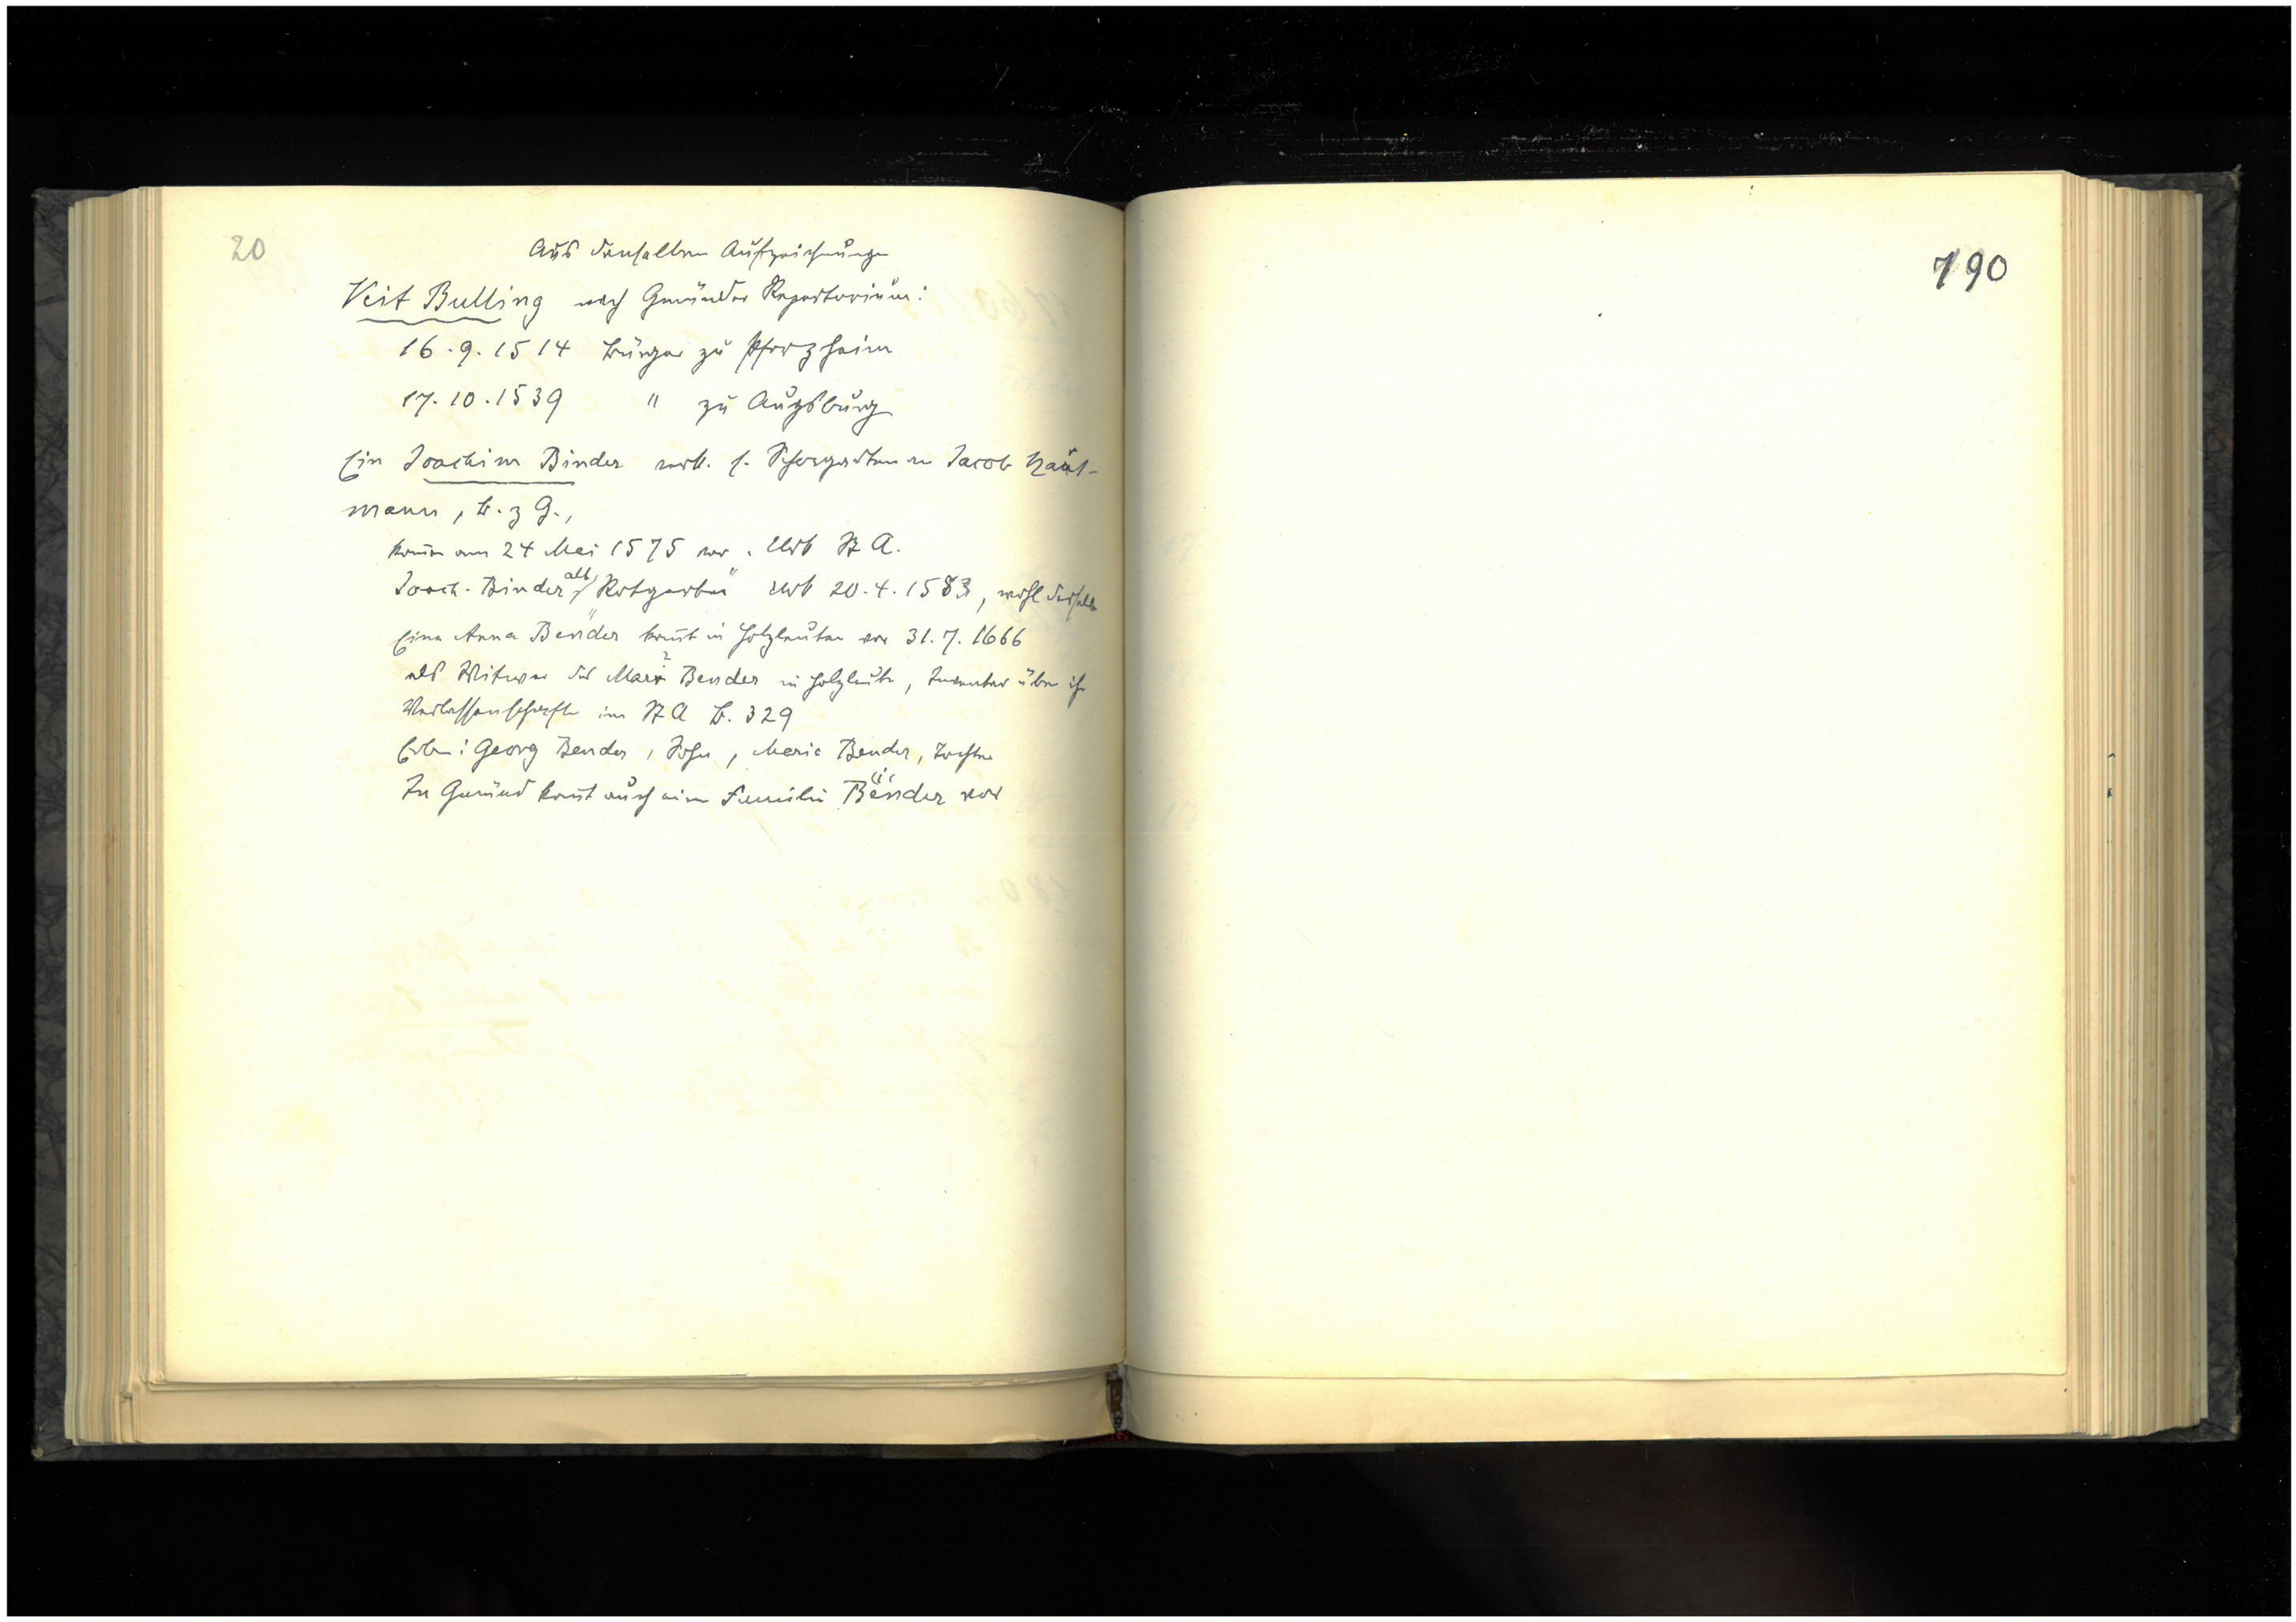 20
Aus denselben Aufzeichnungen
Veit Bulling nach Gmünder Repertorium:
16.9.1514 Bürger zu Pforzheim
17.10.1539 " zu Augsburg
Ein Joachim Binder verk. s. an Jacob Haus-
mann, B. z G.,
kom̄ am 24 Mai 1575 vor. Urk St A.
Joach. Binder alt, Rotgerber Urk 20.4.1583, wohl derselbe
Eine Anna Bender kom̄t in Holzleuten vor 31.7.1666
als Witwe des Bender in Holzleute, Inventar über ihr
Verlassenschaft im St A B. 329
Erben: Georg Bender, Sohn, Maria Bender, Tochter
In Gmünd kom̄t auch eine Familie Bender vor
190